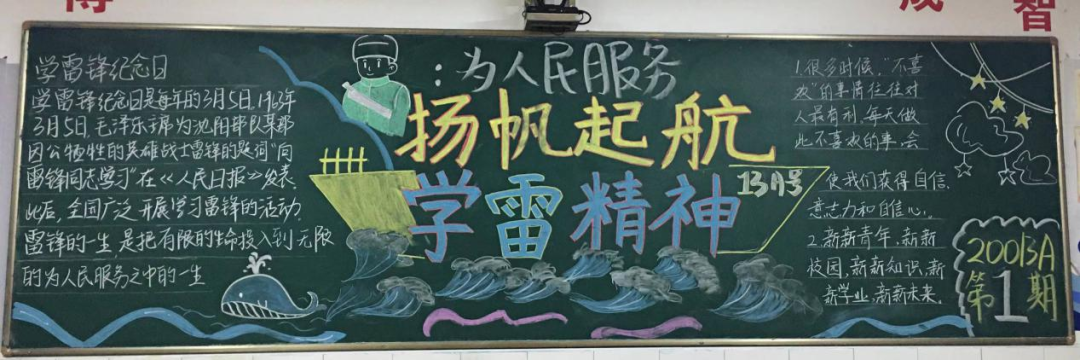 学雷锋纪念日
学雷锋纪念日是每年的3月5日,1963年
3月5日,毛泽东主席为沈阳部队某部
因公牺牲的英雄战士雷锋的题词"向
雷锋同志学习"在《人民日报》发表.
此后,全国广泛开展学习雷锋的活动.
雷锋的一生,是把有限的生命投入到无限
的为人民服务之中的一生
:为人民服务
扬帆起航
学雷精神
1.很多时候,"不喜
欢"的事情往往对
人最有利,每天做
些不喜欢的事,会
使我们获得自信.
意志力和自信心.
2.新新青年,新新
校园,新新知识,新
新学业,新新未来.
200BA
第1期
成
智